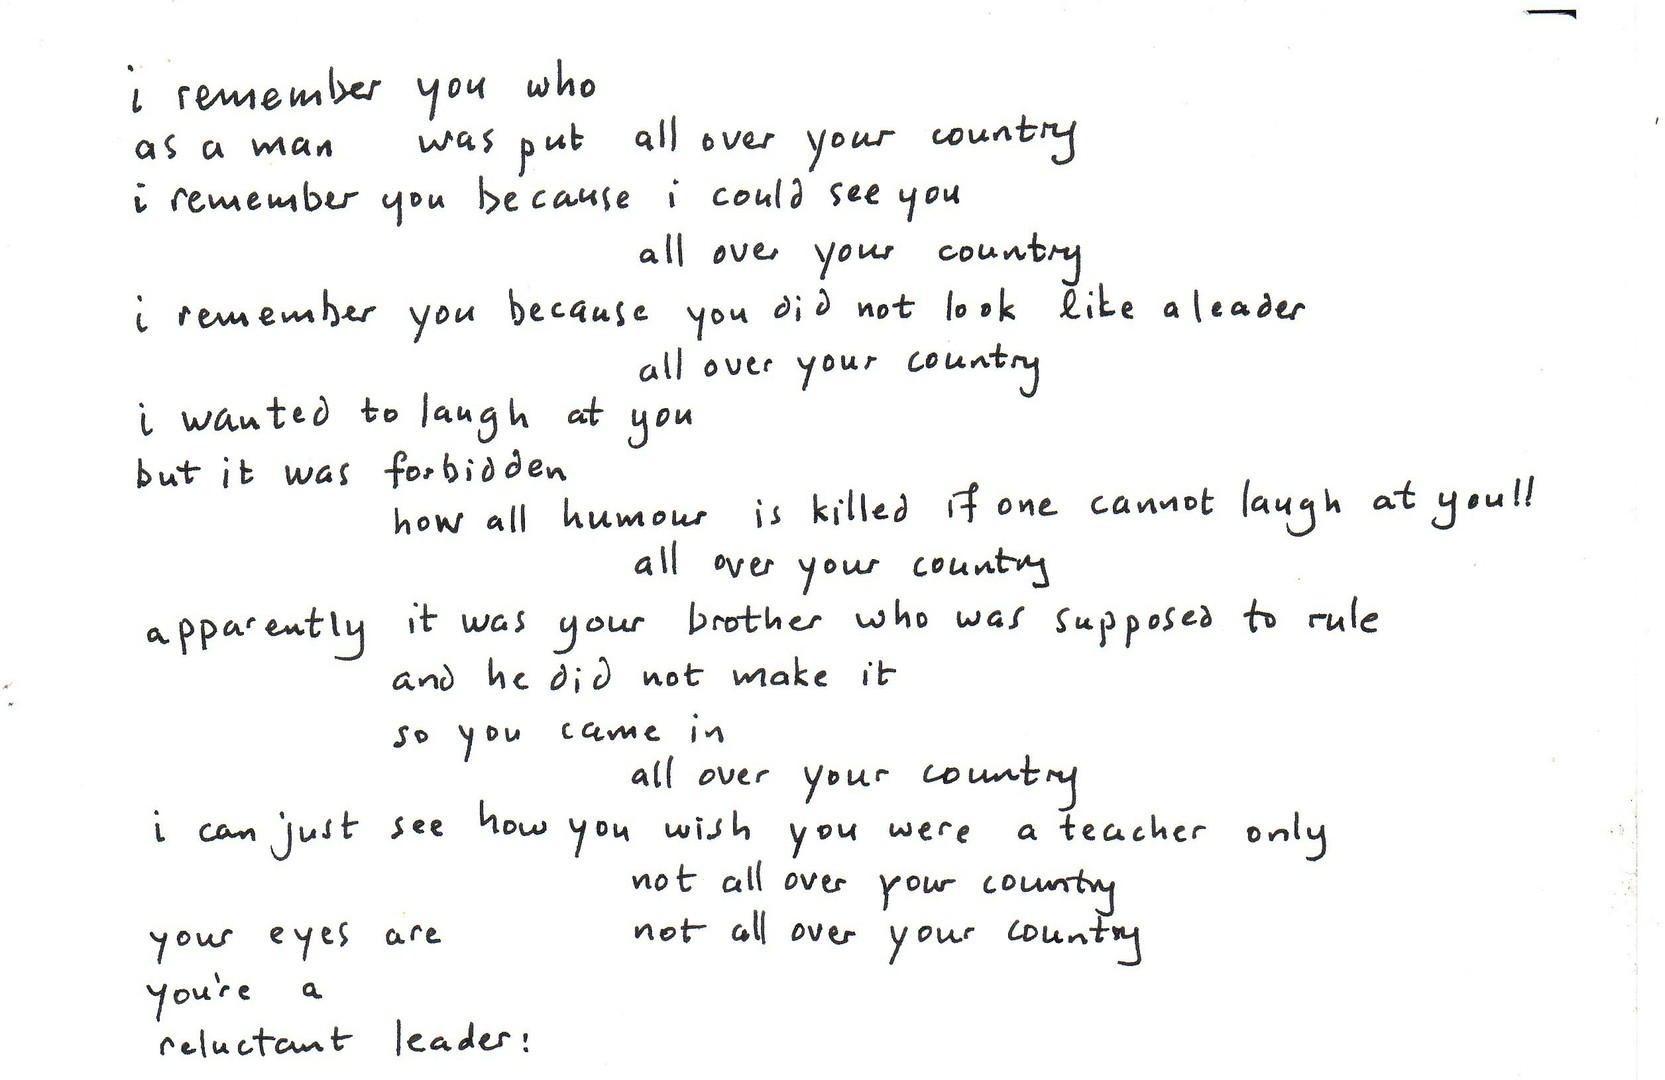 i remember you who
as a man was put all over your country
i remember you because i could see you
all over your country
i remember you because you did not look like a leader
all over your country
i wanted to laugh at you
but it was forbidden
how all humour is killed if one cannot laugh at you!!
all over your country
apparently it was your brother who was supposed to rule
and he did not make it
so you came in
all over your country
i can just see how you wish you were a teacher only
not all over your country
your eyes are not all over your country
you're a
reluctant leader: